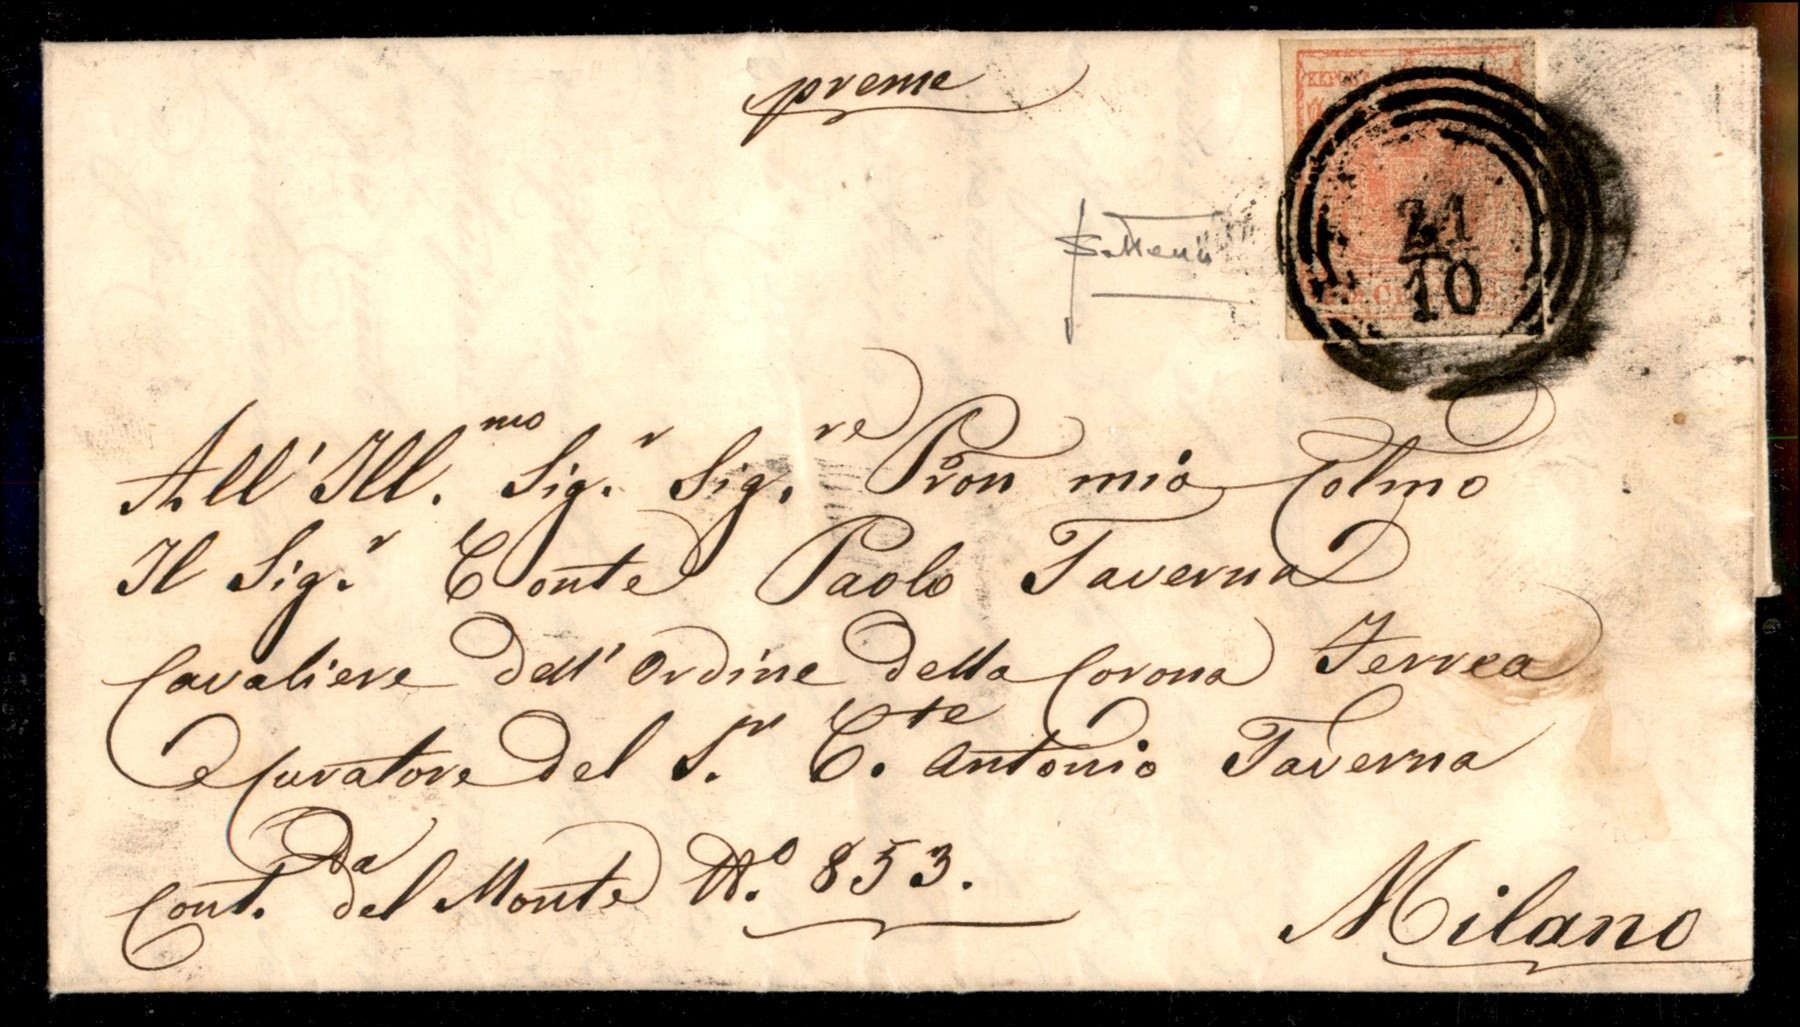 preme
21
10
All' Ill.mo Sig.r Sig.re Pron mio Colmo
Il Sig.r Conte Paolo Taverna
Cavaliere dell' Ordine della Corona Ferrea
e Curatore del S.r C.te Antonio Taverna
Cont.da del Monte N.o 853.
Milano